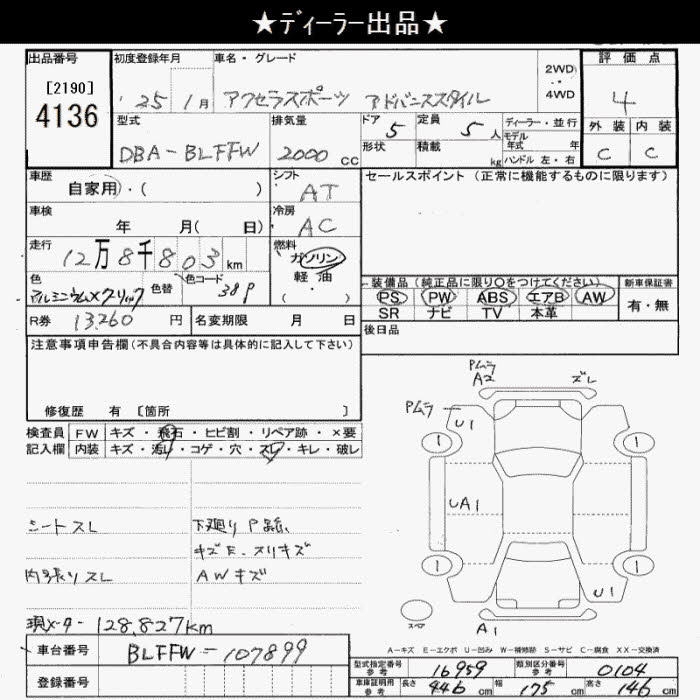 ★ディーラー出品★
出品番号 初度登録年月 車名・グレード 2WD ・ 4WD 評価点
[2190] 4136 '25 1月 アクセラスポーツ アドバンススタイル 4
型式 排気量 ドア 定員 ディーラー・並行 外装 内装
DBA-BLFFW 2000 cc 5 5人 モデル年式 年 C C
形状 積載 kg ハンドル 左・右
車歴 自家用・( ) シフト AT セールスポイント(正常に機能するものに限ります)
車検 年 月( 日) 冷房 AC
走行 12万8千803km 燃料 ガソリン 軽・油 ・( )
色 アルミニウムメタリック 色替 色コード 38P
装備品(純正品に限り○をつけてください) 新車保証書
PS PW ABS エアB AW 有・無
SR ナビ TV 本革
R券 13,260円 名変期限 月 日 後日品
注意事項申告欄(不具合内容等は具体的に記入して下さい)
修復歴 有 [箇所 ]
検査員 FW キズ・飛石・ヒビ割・リペア跡・×要
記入欄 内装 キズ・汚れ・コゲ・穴・スレ・キレ・破レ
シートスレ 下廻りP錆
キズE、スリキズ
内張りスレ AWキズ
現メーター 128,827km
Pムラ
A2 ズレ
Pムラ U1
1 1
UA1
1 1
U1
スペア A1
A-キズ E-エクボ U-凹み W-補修跡 S-サビ C-腐食 XX-交換済
車台番号 BLFFW-107899
登録番号
型式指定番号 参考 16959 類別区分番号 参考 0104
車庫証明用 参考 長さ 446cm 幅 175cm 高さ 146cm